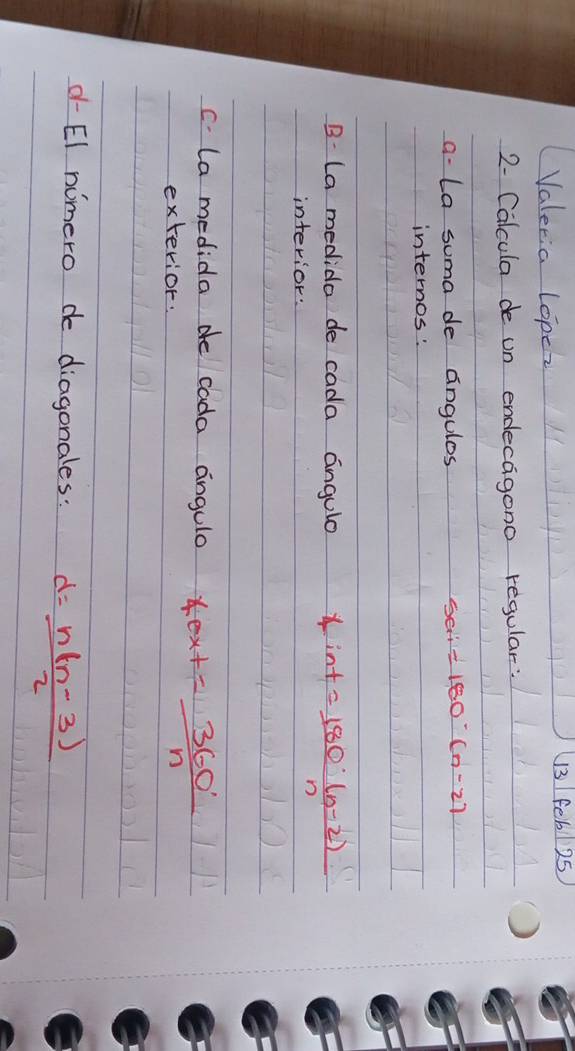 Valeria López 13 | feb | 25
2- Cálcula de un endecágono regular:
a- La suma de ángulos sai = 180° (n-2)
internos:
B- La medida de cada ángulo ∡ int = 180° (n-2)
interior: n
C- La medida de cada ángulo ∡ ext = 360°
exterior: n
d- El número de diagonales: d= n(n-3)
2